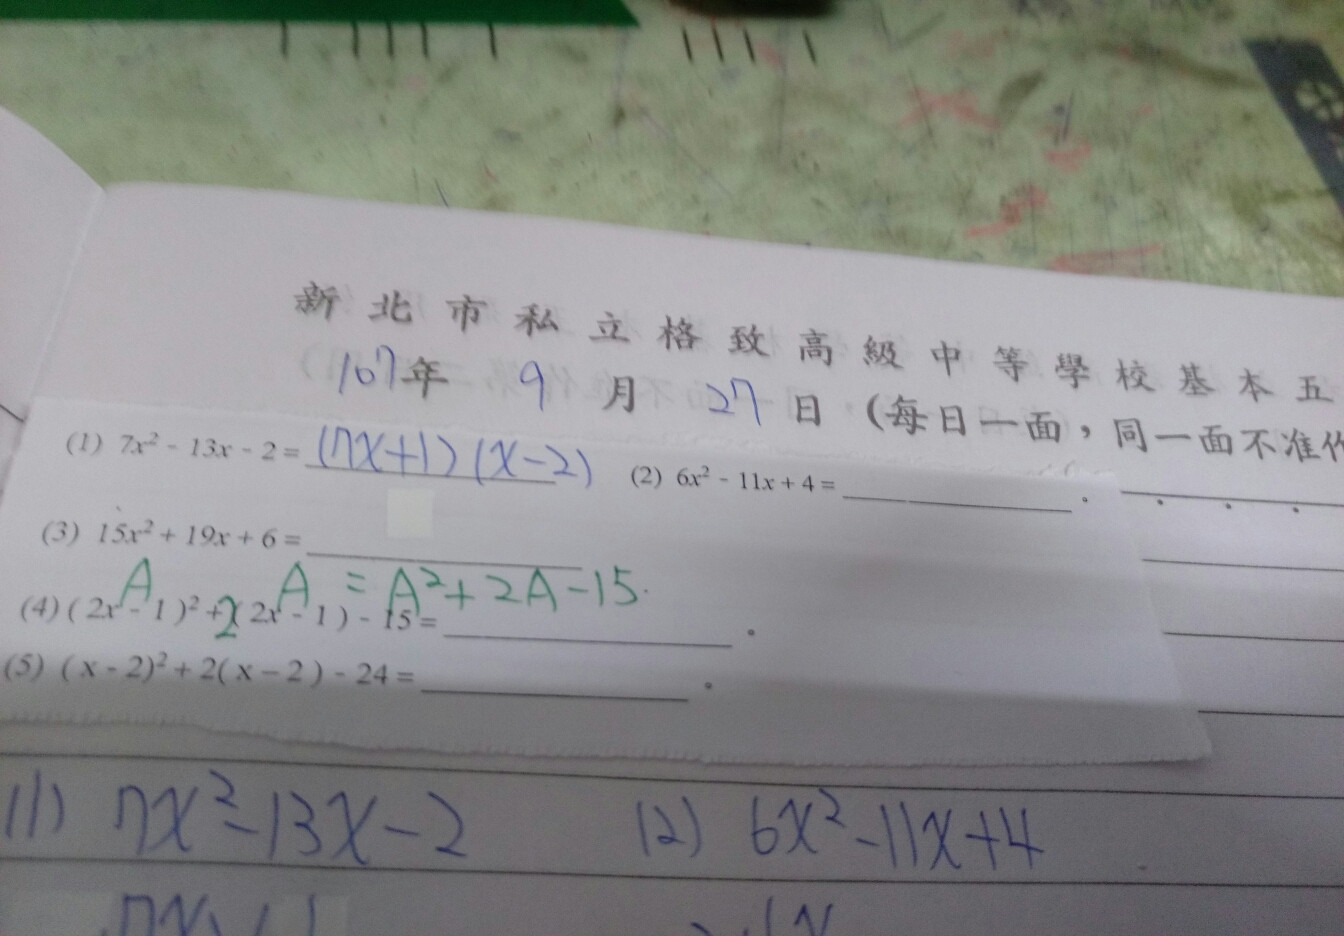 新北市私立格致高級中等學校基本五
107年 9月 27日 (每日一面，同一面不准作
(1) 7x² - 13x - 2 = (7x+1)(x-2) (2) 6x² - 11x + 4 = ______。
(3) 15x² + 19x + 6 = ______
A A = A²+2A-15.
(4) ( 2x - 1 )² + 2( 2x - 1 ) - 15 = ______。
(5) ( x - 2)² + 2( x - 2 ) - 24 = ______。
(1) 7x²-13x-2 (2) 6x²-11x+4